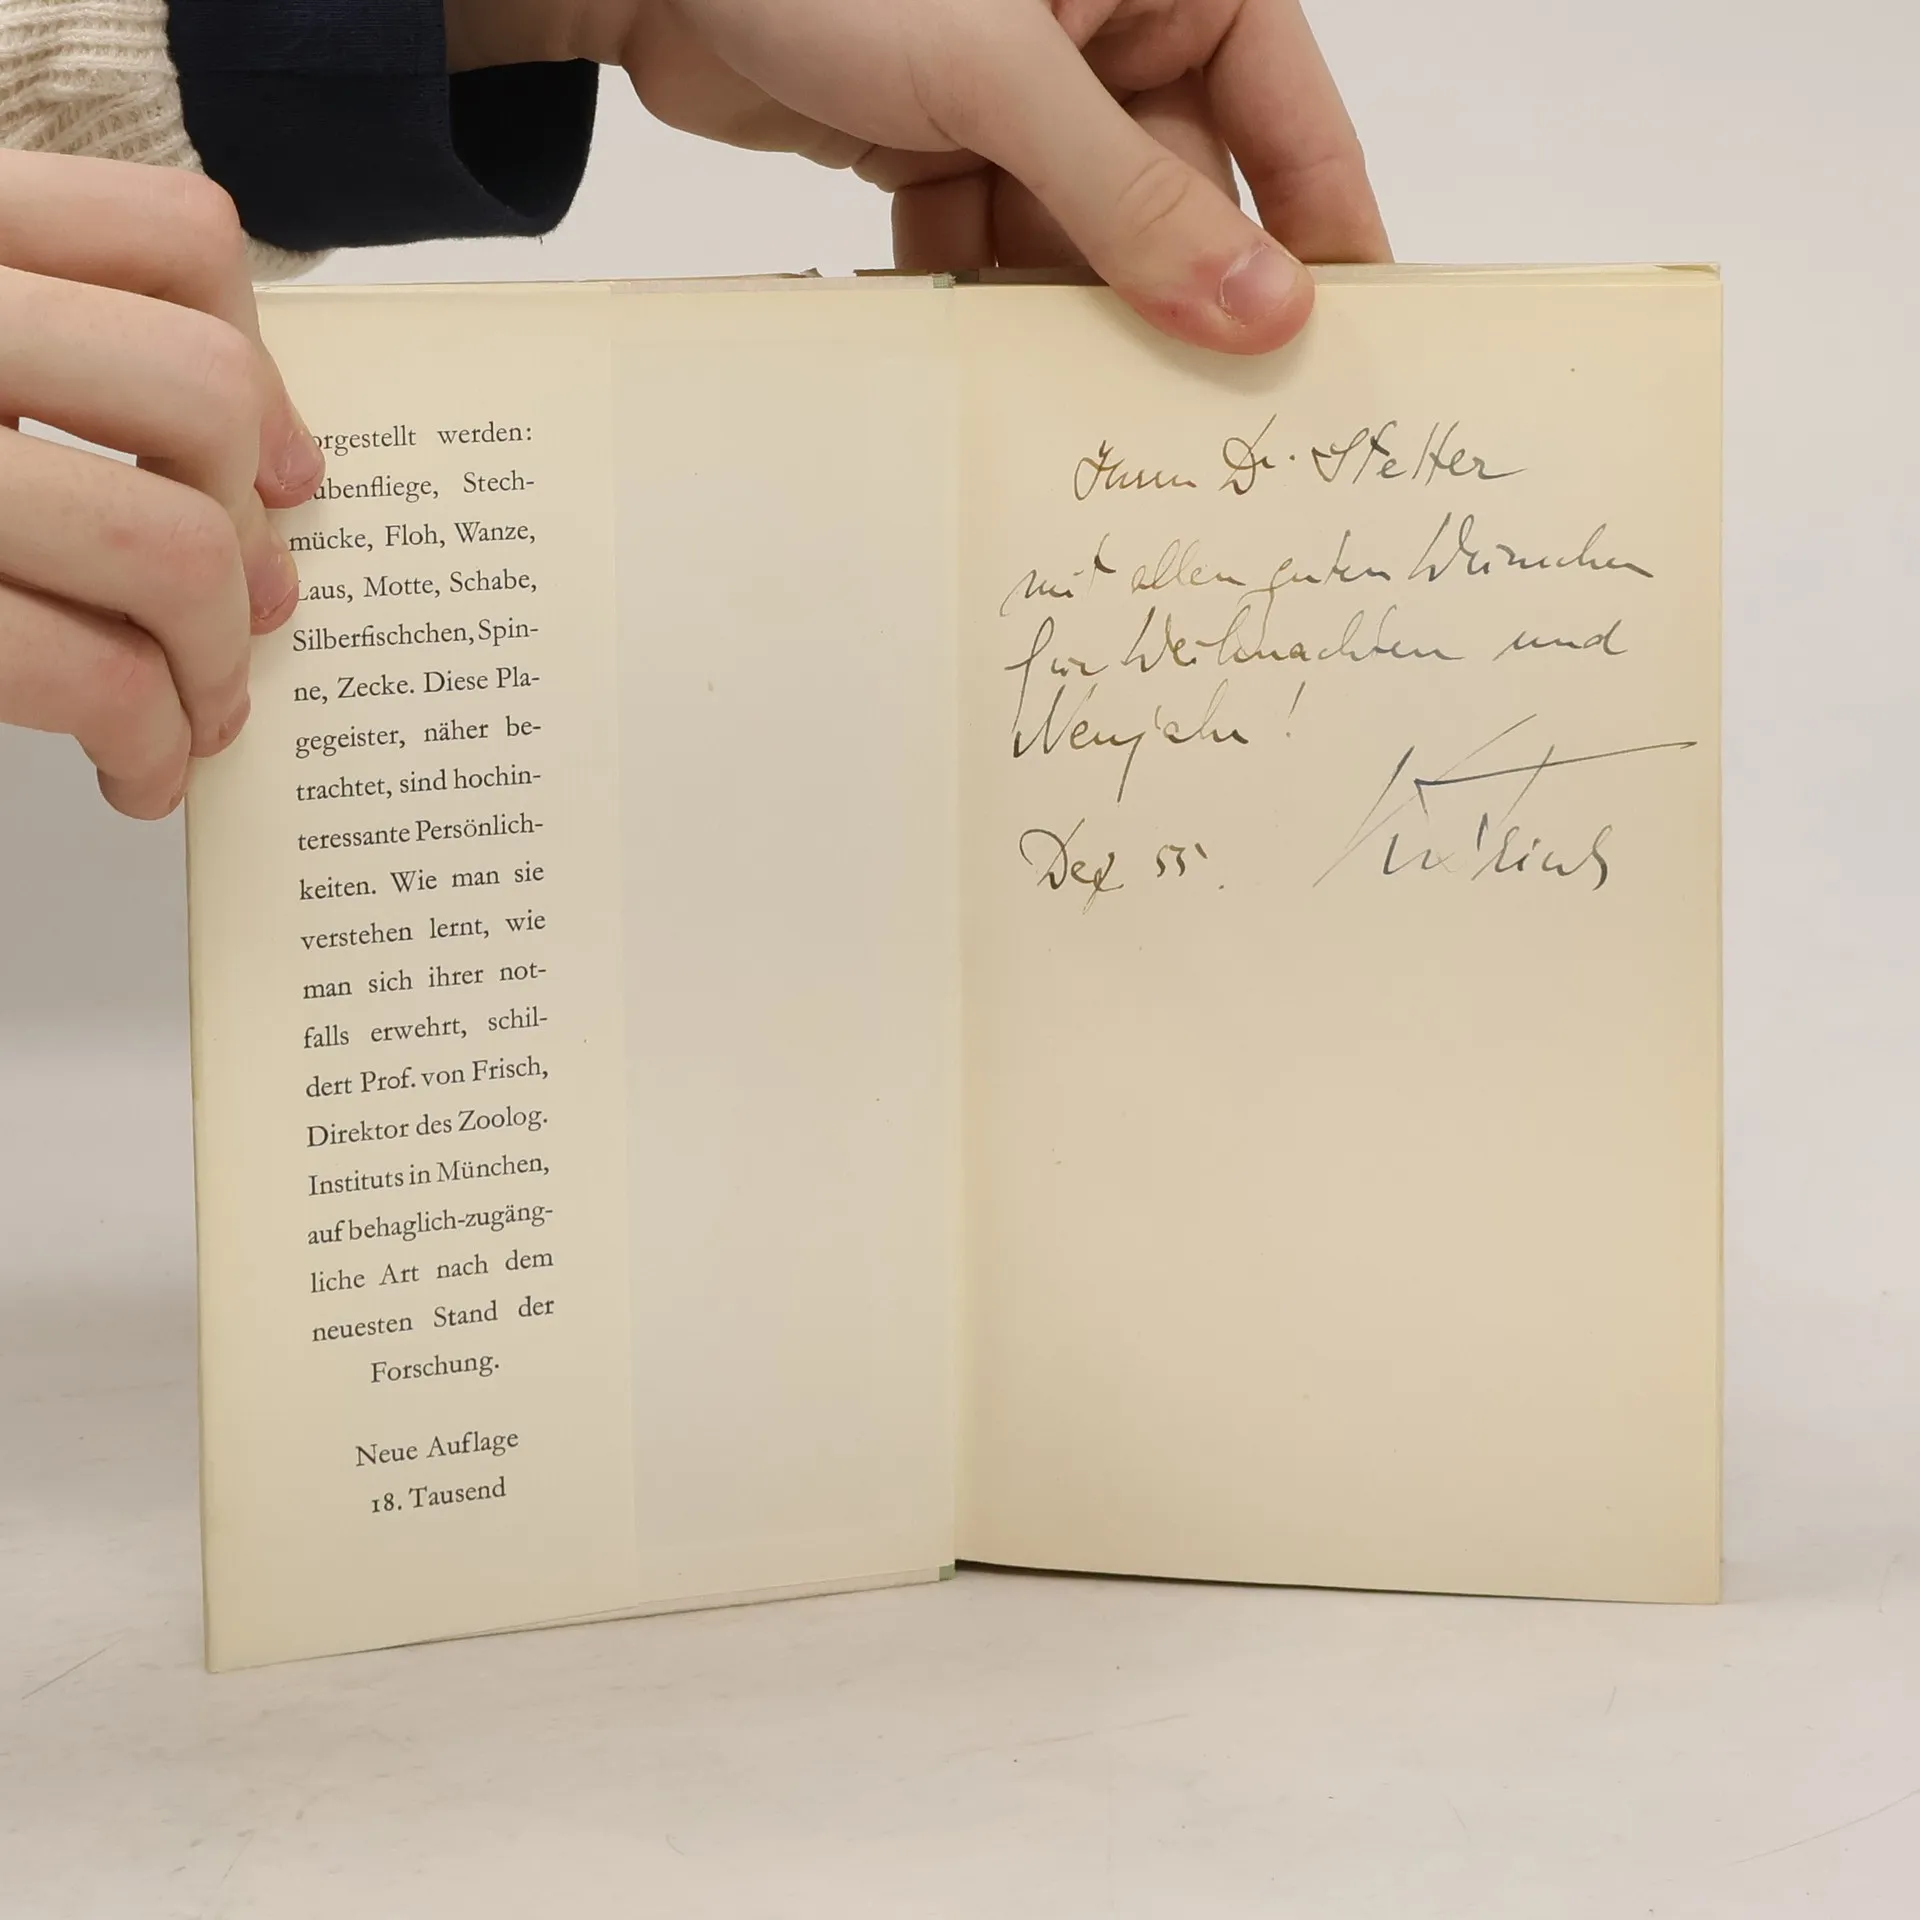 orgestellt werden:
ubenfliege, Stech-
mücke, Floh, Wanze,
Laus, Motte, Schabe,
Silberfischchen, Spin-
ne, Zecke. Diese Pla-
gegeister, näher be-
trachtet, sind hochin-
teressante Persönlich-
keiten. Wie man sie
verstehen lernt, wie
man sich ihrer not-
falls erwehrt, schil-
dert Prof. von Frisch,
Direktor des Zoolog.
Instituts in München,
auf behaglich-zugäng-
liche Art nach dem
neuesten Stand der
Forschung.
Neue Auflage
18. Tausend
Herrn Dr. Stetter
mit allen guten Wünschen
für Weihnachten und
Neujahr!
Dez 55.